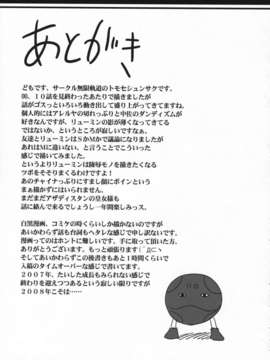 あとがき
どもです、サークル無限軌道のトモセシュンサクです。
00、10話を見終わったあたりで描きましたが
話がゴスっといろいろ動き出して盛り上がってきてますね。
個人的にはアレルヤの切れっぷりと中佐のダンディズムが
好きなんですが、リューミンの影が薄くなってきてる
ではないか、というところが寂しいですなぁ。
友達とリューミンはSかMかで議論になりましたが
あれはMに違いない、と言うことでこういった
感じで描いてみました。
というよりリューミンは陵辱モノを描きたくなる
ツボをそそりまくるわけですよ！
あのチャイナっぷりにすまし顔にボインという
まぁ描かずにはいられません。
まだまだアザディスタンの皇女様も
話に絡んで来るでしょうし一年間楽しみっス。
白黒漫画、コミケの時くらいしか描かないのですが
あいかわらず話も台詞もヘタレな感じで申し訳ないです。
漫画ってのはホントに難しいです。手に取って頂いた方、
ありがとうございます。もっと頑張ります
そしてあいかわらずこの後書きもあと1時間くらいで
入稿のタイムオーバーな感じで書いてます。
2007年、たいした成長もみられない感じで
終わりを迎えつつあるという寂しい限りですが
2008年こそは……